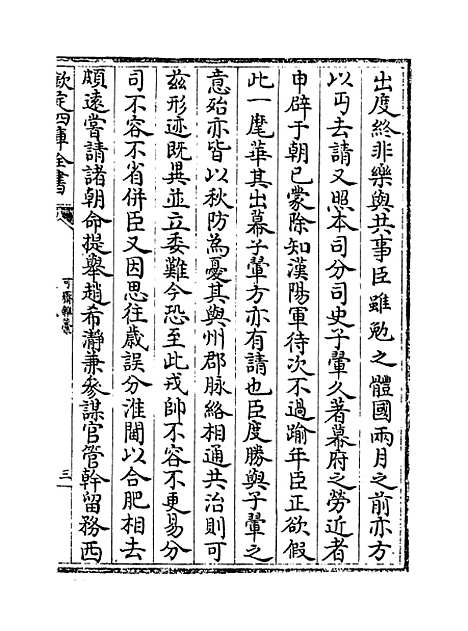 出度終非樂與共事臣雖勉之體國兩月之前亦方
以丐去請又照本司分司史子翬久著幕府之勞近者
申辟于朝已蒙除知漢陽軍待次不過踰年臣正欲假
此一麾華其出幕子翬方亦有請也臣度勝與子翬之
意殆亦皆以秋防為憂其與州郡脉絡相通共治則可
兹形迹既異並立委難今恐至此戎帥不容不更易分
司不容不省併臣又因思往歲誤分淮閫以合肥相去
頗遠嘗請諸朝命提舉趙希瀞兼參謀官管幹留務西
欽定四庫全書
可齋雜藁
三